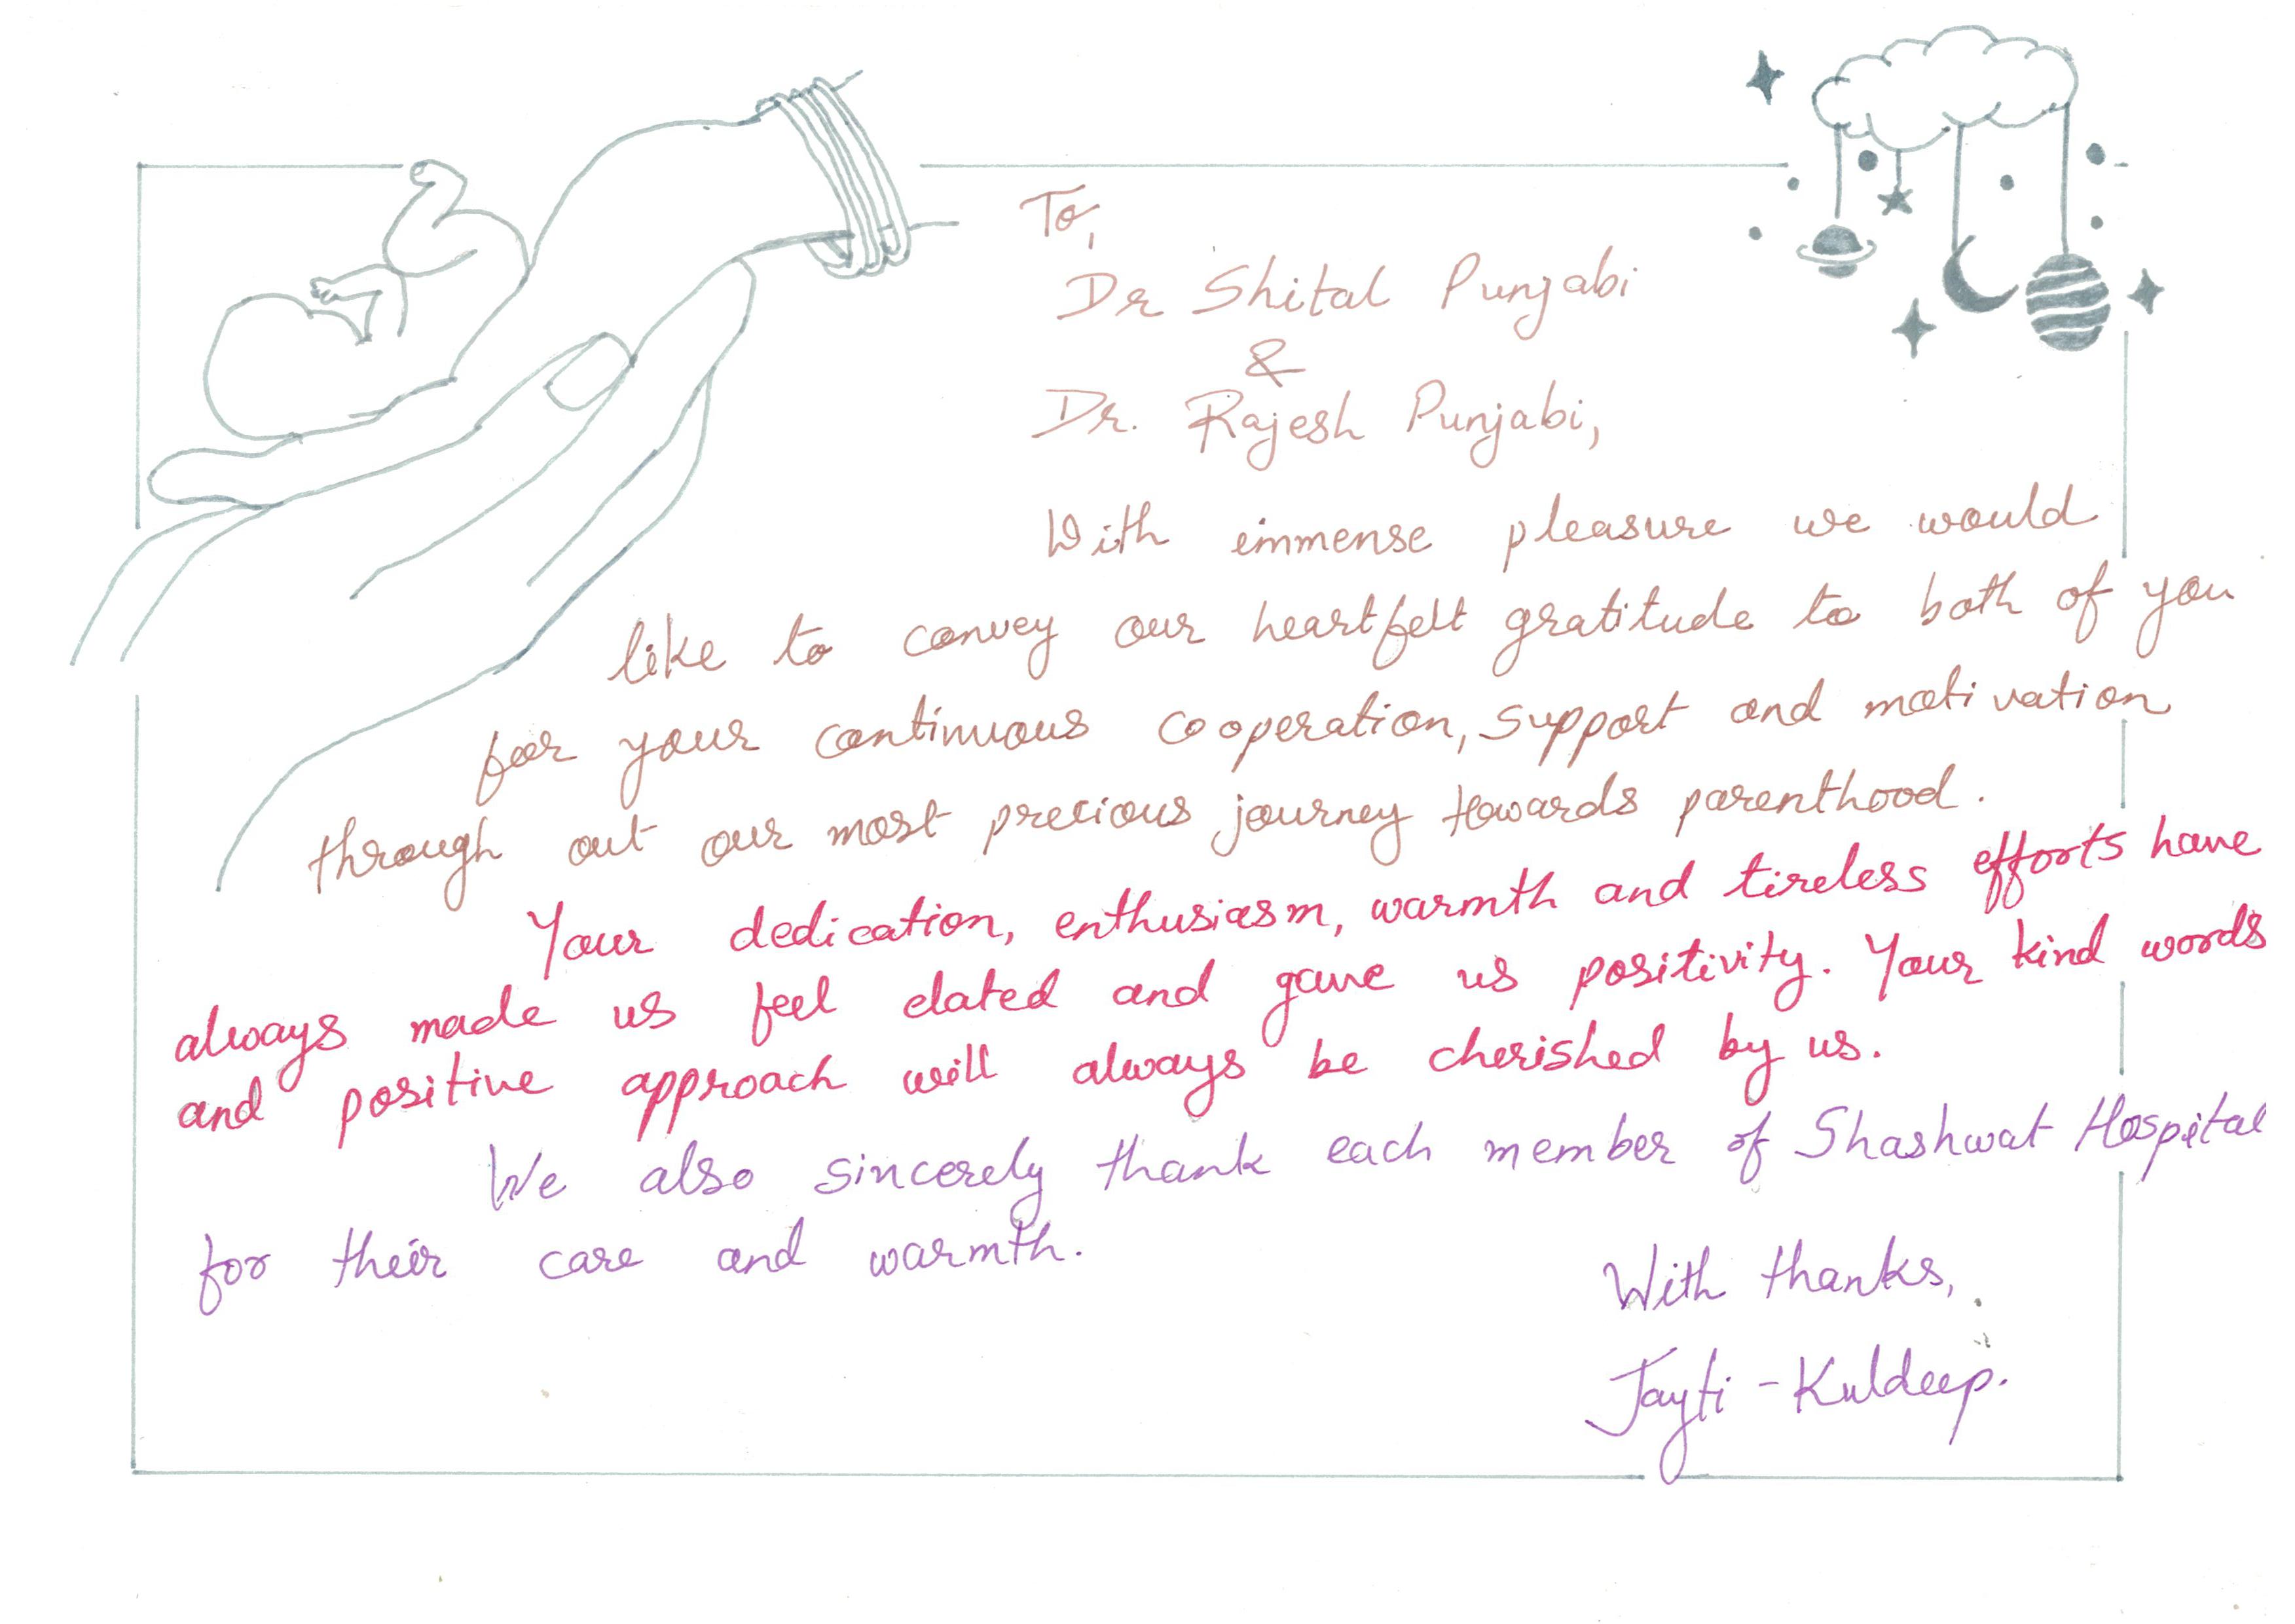 To,
Dr Shital Punjabi
&
Dr. Rajesh Punjabi,
With immense pleasure we would
like to convey our heartfelt gratitude to both of you
for your continuous cooperation, support and motivation
through out our most precious journey towards parenthood.
Your dedication, enthusiasm, warmth and tireless efforts have
always made us feel elated and gave us positivity. Your kind words
and positive approach will always be cherished by us.
We also sincerely thank each member of Shashwat Hospital
for their care and warmth.
With thanks,
Jayti - Kuldeep.